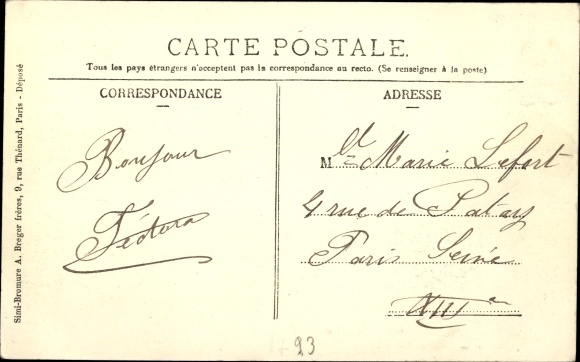 CARTE POSTALE.
Tous les pays étrangers n'acceptent pas la correspondance au recto. (Se renseigner à la poste)
CORRESPONDANCE
ADRESSE
Bonjour
Fédora
Mlle Marie Lefort
4 rue de Patay
Paris Seine
XIIIe
23
Simi-Bromure A. Breger frères, 9, rue Thénard, Paris - Déposé